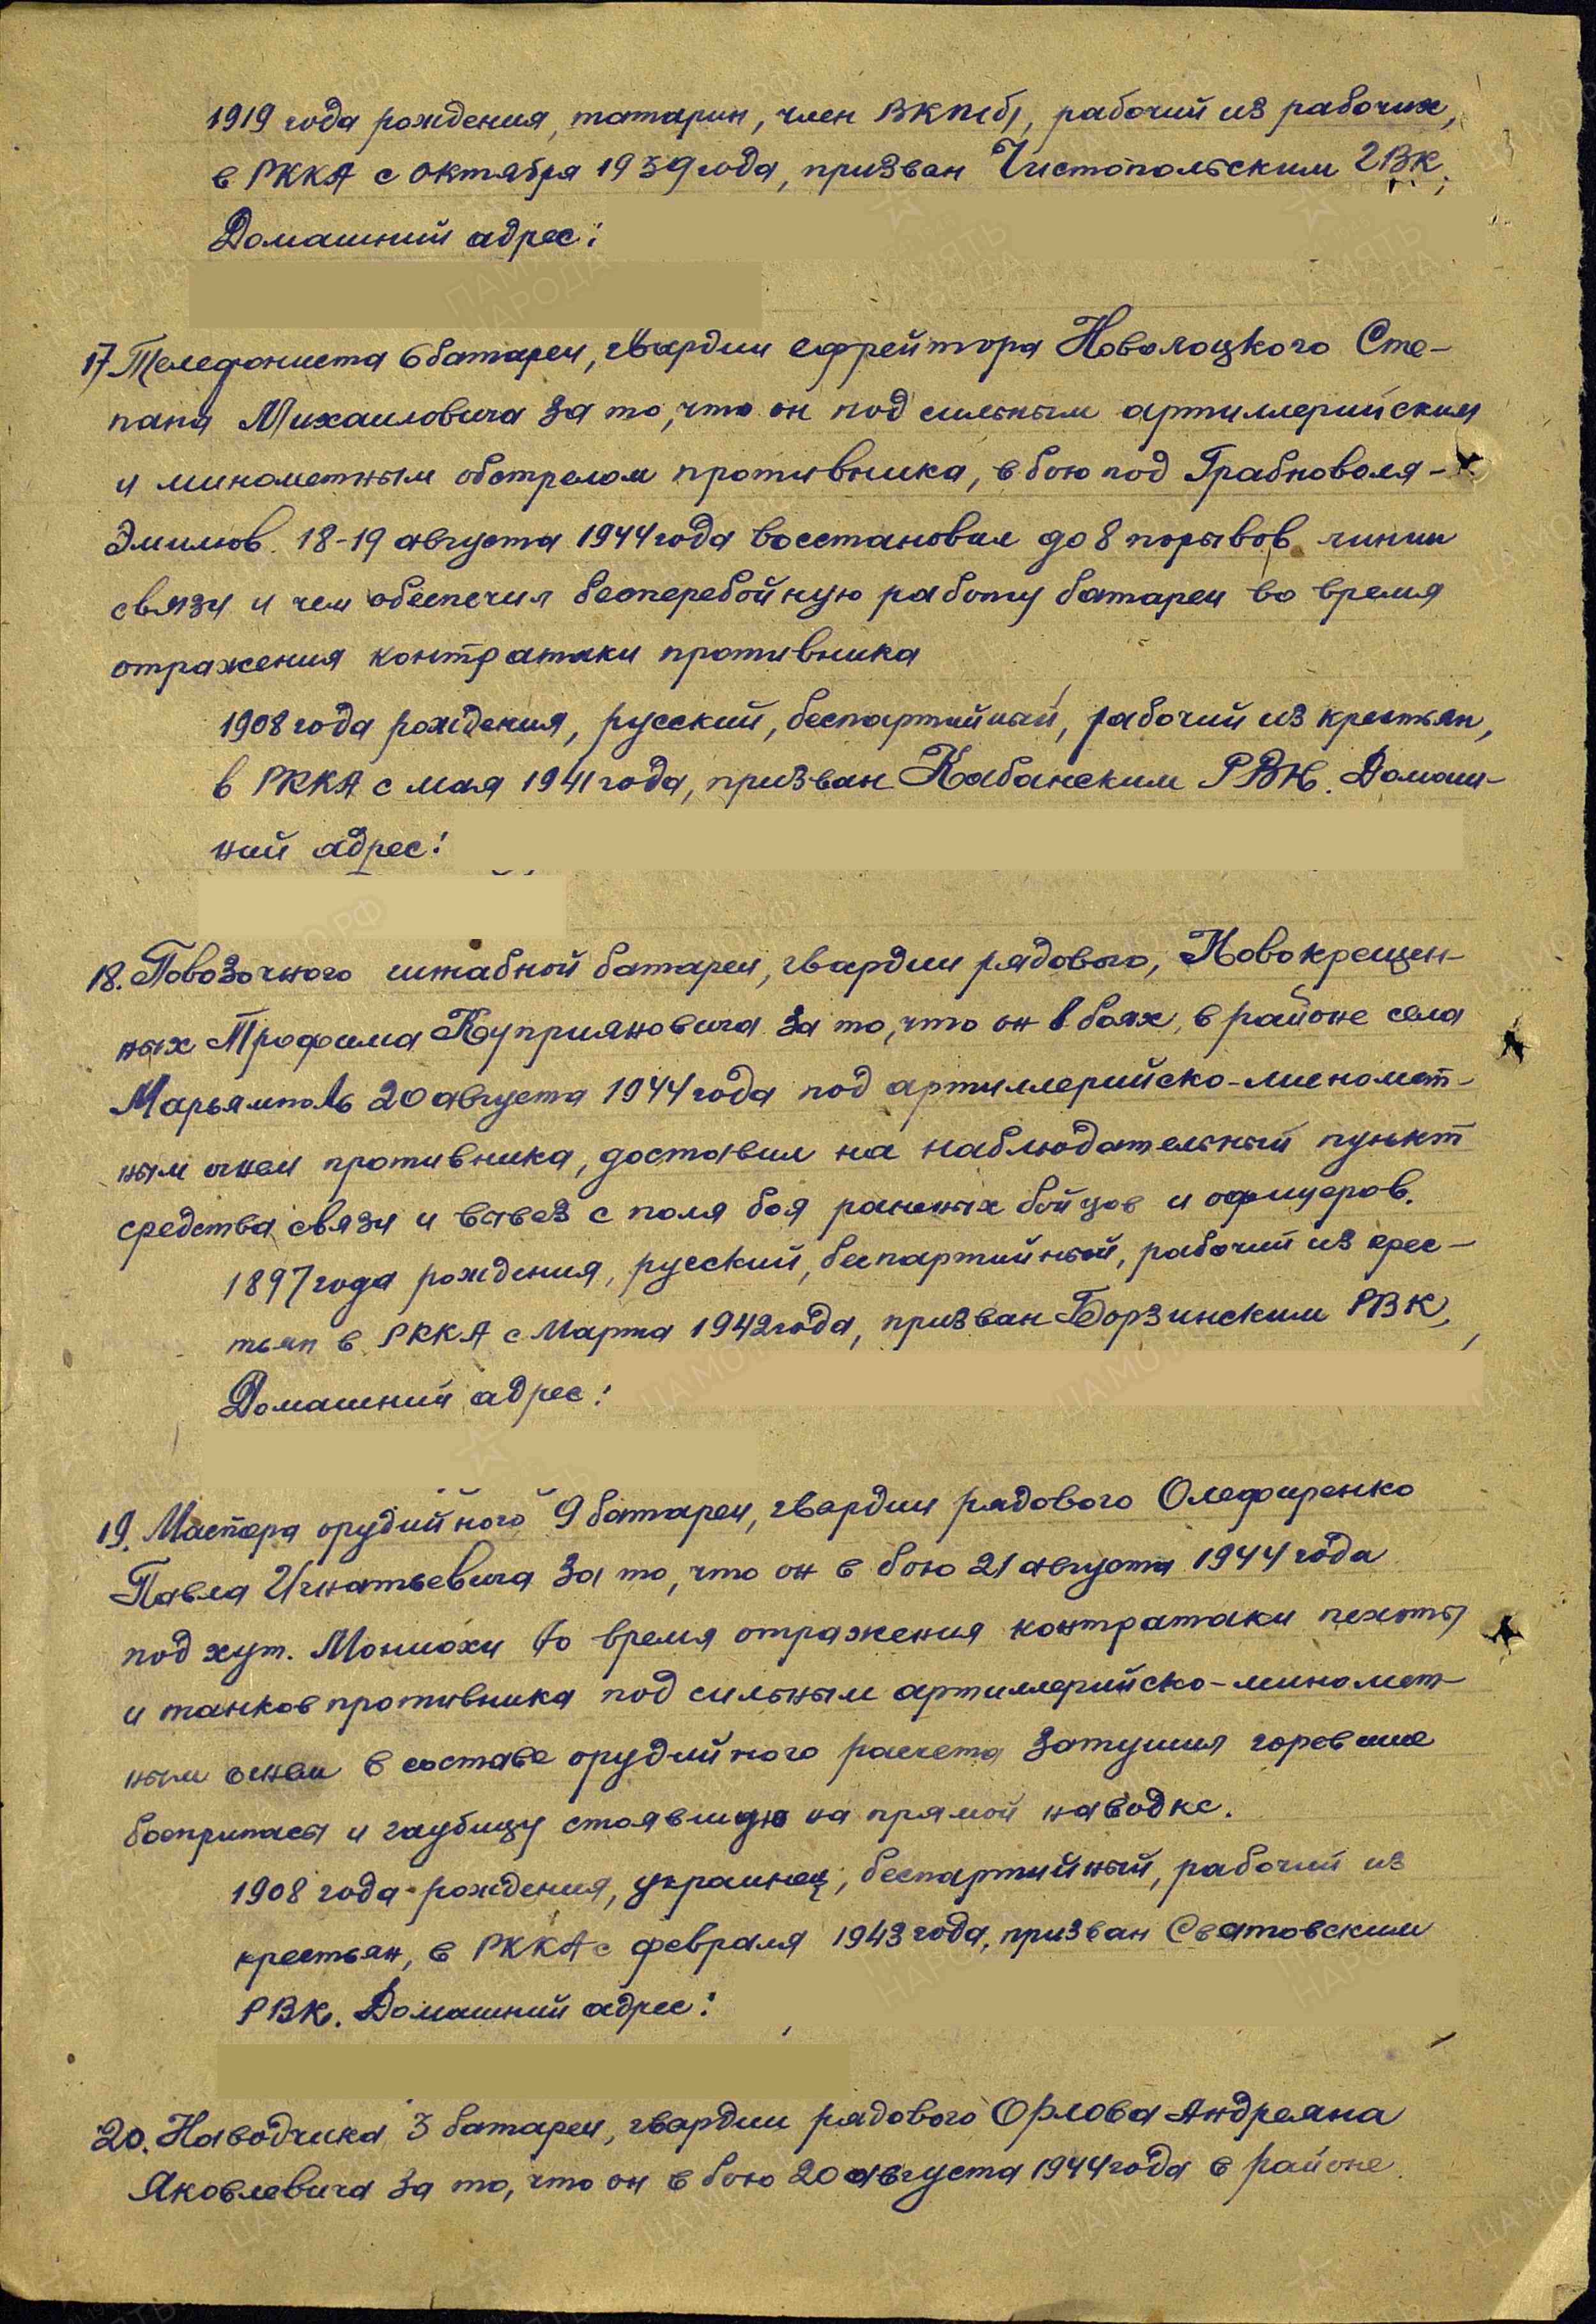 1919 года рождения, татарин, член ВКП(б), рабочий из рабочих,
в РККА с октября 1939 года, призван Чистопольским ГВК.
Домашний адрес:
17. Телефониста 6 батареи, гвардии ефрейтора Новолоцкого Сте-
пана Михаиловича за то, что он под сильным артиллерийским
и минометным обстрелом противника, в бою под Грабноволя-
Эмилюв 18-19 августа 1944 года восстановил до 8 порывов линии
связи и чем обеспечил бесперебойную работу батареи во время
отражения контратаки противника
1908 года рождения, русский, беспартийный, рабочий из крестьян,
в РККА с мая 1941 года, призван Кабанским РВК. Домаш-
ний адрес:
18. Повозочного штабной батареи, гвардии рядового, Новокрещен-
ных Трофима Куприяновича за то, что он в боях, в районе села
Марьямполь 20 августа 1944 года под артиллерийско-миномет-
ным огнем противника, доставил на наблюдательный пункт
средства связи и вывез с поля боя раненых бойцов и офицеров.
1897 года рождения, русский, беспартийный, рабочий из крес-
тьян в РККА с Марта 1942 года, призван Борзинским РВК,
Домашний адрес:
19. Мастера орудийного 9 батареи, гвардии рядового Олефиренко
Павла Игнатьевича за то, что он в бою 21 августа 1944 года
под хут. Мониохи во время отражения контратаки пехоты
и танков противника под сильным артиллерийско-миномет-
ным огнем в составе орудийного расчета затушил горевшие
боеприпасы и гаубицу стоявшую на прямой наводке.
1908 года рождения, украинец, беспартийный, рабочий из
крестьян, в РККА с февраля 1943 года, призван Сватовским
РВК. Домашний адрес:
20. Наводчика 3 батареи, гвардии рядового Орлова Андреяна
Яковлевича за то, что он в бою 20 августа 1944 года в районе